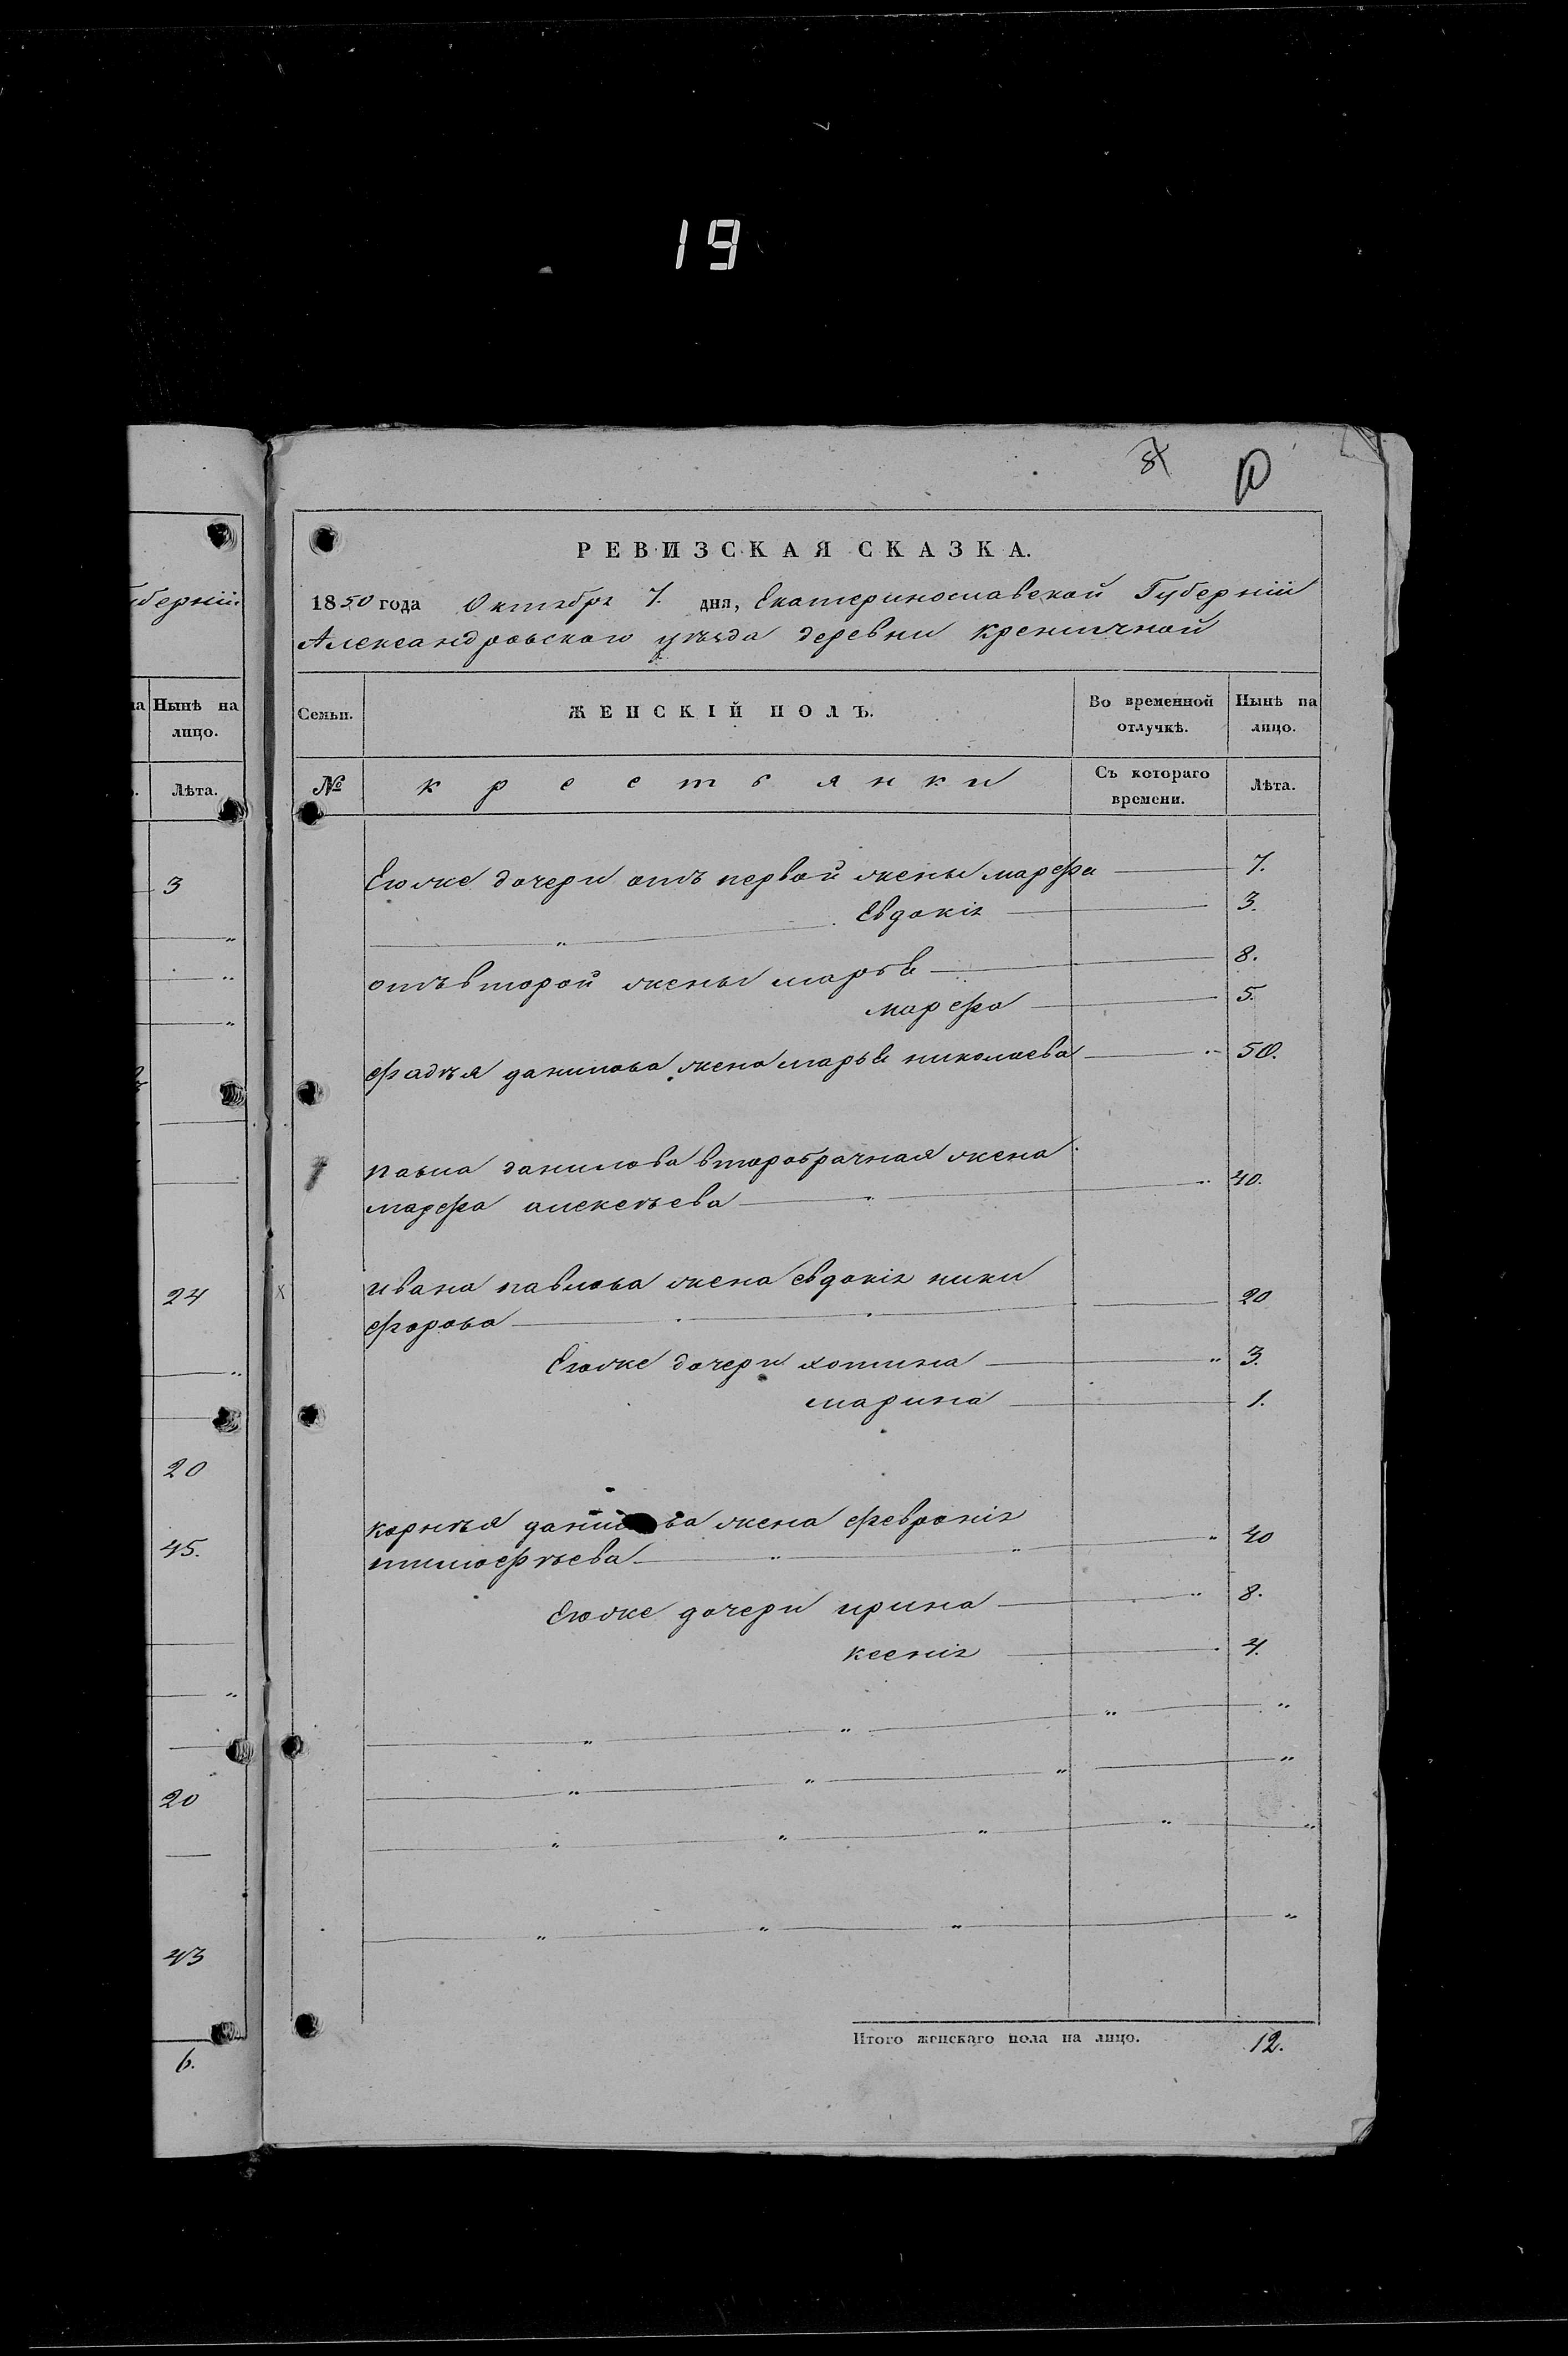 19
10
РЕВИЗСКАЯ СКАЗКА.
1850 года Октября 7. дня, Екатеринославской Губерніи
Александровского уѣзда деревни Кременчной
Семьи.
ЖЕНСКІЙ ПОЛЪ.
Во временной отлучкѣ.
Нынѣ на лицо.
№
крестьянки
Съ котораго времени.
Лѣта.
Егоже дочери отъ первой жены марфа 7.
Евдокія 3.
отъ второй жены марья 8.
марфа 5.
фадѣя данилова жена марья николаева 50.
павла данилова второбрачная жена
марфа алексѣева 40.
ивана павлова жена евдокія ники
форова 20
Егоже дочери
марина 1.
3.
корнѣя данилова жена февронія
тимофѣева 40
Егоже дочери ирина 8.
ксенія 4.
Итого женскаго пола на лицо. 12.
уберніи
Нынѣ на
лицо.
Лѣта.
3
24
20
45.
20
43
6.